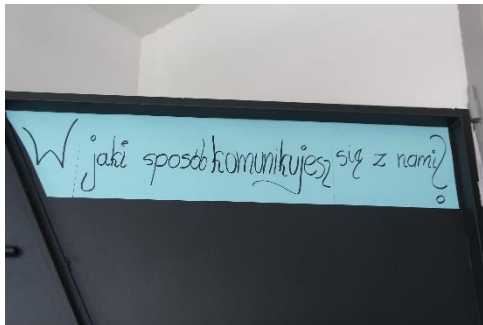 W jaki sposób komunikujesz się z nami?